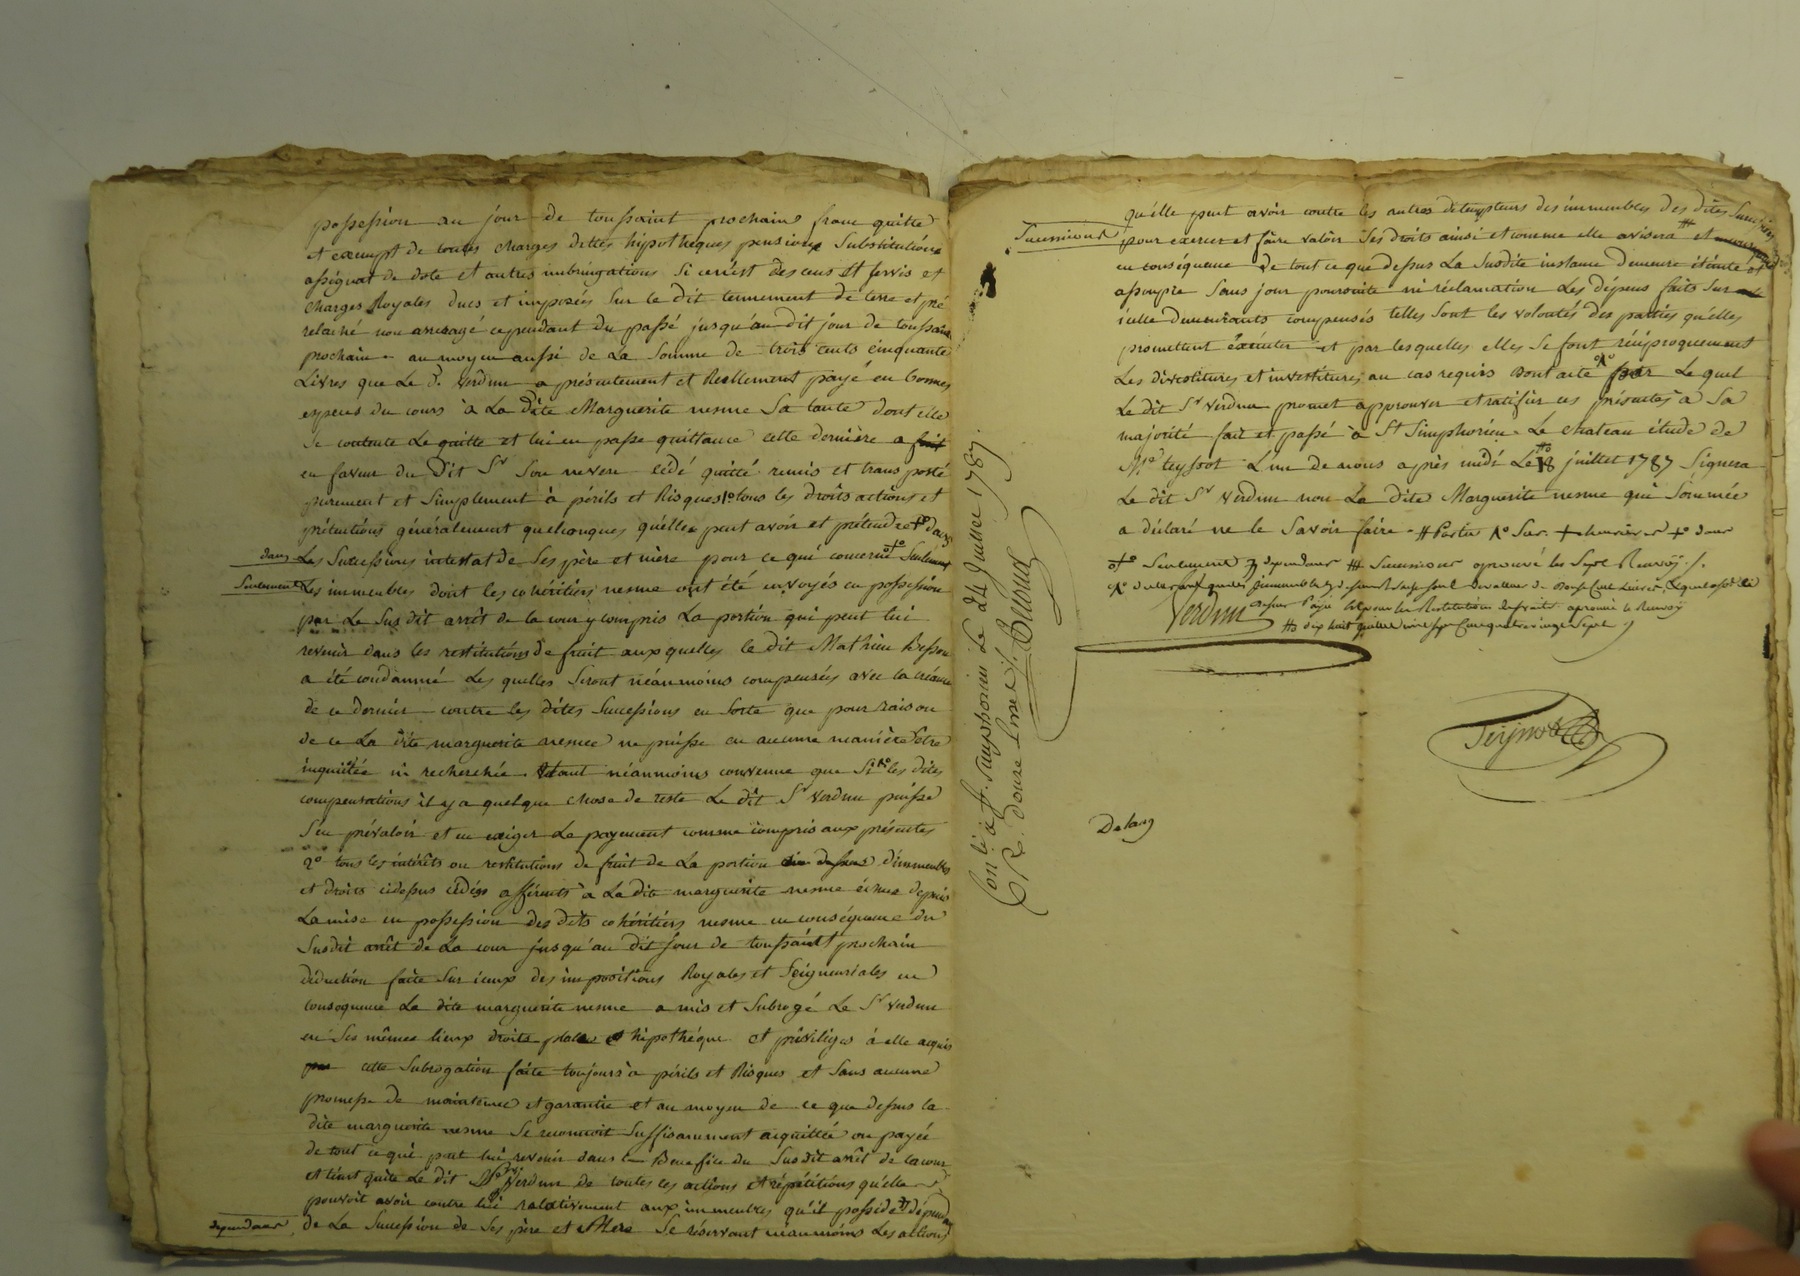 possession au jour de toussaint prochain franc quitte
et exempt de toutes charges dettes hipotheques pensions substitutions
assignat de dote et autres imbringations si ce n'est des cens et servis et
charges Royales dues et imposées sur le dit tennement de terre et pré
relaché non arreragé cependant du passé jusqu'au dit jour de toussaint
prochain. au moyen aussi de La somme de trois cents cinquante
Livres que Le Sr. Verdun a présentement et Réellement payé en bonnes
especes du cours à La dite Marguerite nesme sa tante dont elle
se contente Le quitte et lui en passe quittance cette dernière a fait
en faveur du dit Sr son neveu cédé quitté remis et transporté
purement et simplement à périls et Risques 1o tous les droits actions et
prétentions généralement quelconques qu'elle peut avoir et prétendre dans
dans Les Successions intestat de ses père et mère pour ce qui concerne seulement
Seulement Les immeubles dont les cohéritiers nesme ont été envoyés en possession
par Le susdit arrêt de la cour y compris La portion qui peut lui
revenir dans les restitutions de fruit auxquelles le dit Mathieu Besson
a été condamné Les quelles seront néanmoins compensées avec la créance
de ce dernier contre les dites Successions en sorte que pour raison
de ce La dite marguerite nesme ne puisse en aucune manière être
inquiétée ni recherchée. étant néanmoins convenu que si les dites
compensations il y a quelque chose de reste Le dit Sr Verdun puisse
s'en prévaloir et en exiger Le payement comme compris aux présentes
2o tous les intérêts ou restitutions de fruit de La portion d'immeubles
et droits cidessus cédés afférents à La dite marguerite nesme échus depuis
La mise en possession des dits cohéritiers nesme en conséquence du
Susdit arrêt de La cour jusqu'au dit jour de toussaint prochain
déduction faite sur iceux des impositions Royales et Seigneuriales en
conséquence La dite marguerite nesme a mis et subrogé Le Sr Verdun
en ses mêmes lieux droits place et hipothéque et privilèges à elle acquis
cette subrogation faite toujours à périls et Risques et sans aucune
promesse de maintenue et garantie et au moyen de ce que dessus la
dite marguerite nesme se reconnoit suffisamment acquittée ou payée
de tout ce qui peut lui revenir dans le Bénéfice du susdit arrêt de la cour
et tient quitte Le dit Sr Verdun de toutes les actions et répétitions qu'elle
pouvoit avoir contre lui relativement aux immeubles qu'il possède dépendans
dependans de La Succession de ses père et Mère se réservant néanmoins Les actions
qu'elle peut avoir contre les autres détempteurs des immeubles des dites Successions
Successions pour exercer et faire valoir ses droits ainsi et comme elle avisera et
en conséquence de tout ce que dessus La Susdite instance demeure éteinte et
assoupie sans jour poursuite ni réclamation Les dépens faits sur
icelle demeurants compensés telles sont les volontés des parties qu'elles
promettent éxécuter et par lesquelles elles se font réciproquement
Les divestitures et investitures au cas requis dont acte Le quel
Le dit Sr Verdun promet approuver et ratifier ces présentes à sa
majorité fait et passé à St Simphorien Le chateau étude de
Me teyssot L'un de nous après midi Le 18 juillet 1787 signera
Le dit Sr Verdun non La dite Marguerite nesme qui sommée
a déclaré ne le savoir faire
seulement dependans Successions aprouvé les sept Renvoy
Verdun
aprouvé le Renvoy
dix huit
Conlé à St. Simphorien Le 24 Juillet 1787.
R. douze Livres
Delay